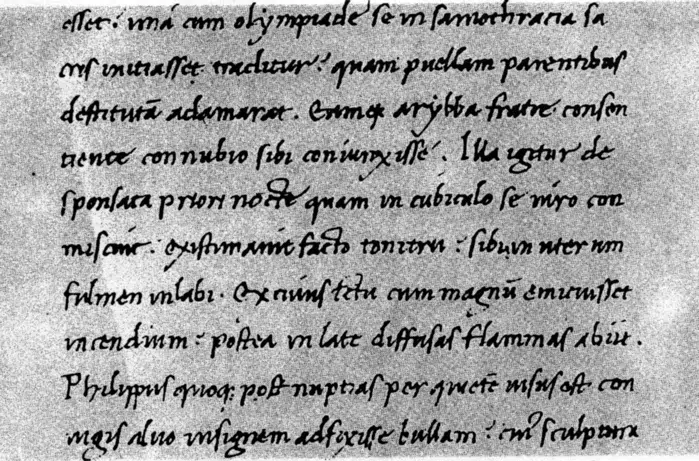 esset: unà cum olympiade se in samothracia sa
cris initiasset traditur: quam puellam parentibus
destitutā adamarat. Eamq; arybba fratre consen
tiente connubio sibi coniunxisse. Illa igitur de
sponsata priori nocte quam in cubiculo se viro con
miscuit: existimavit facto tonitru: sibi in uterum
fulmen inlabi. Ex cuius ictu cum magnū emicuisset
incendium: postea in late diffusas flammas abiit.
Philippus quoq; post nuptias per quietē visus est con
iugis aluo insignem adfixisse bullam: cui sculptura